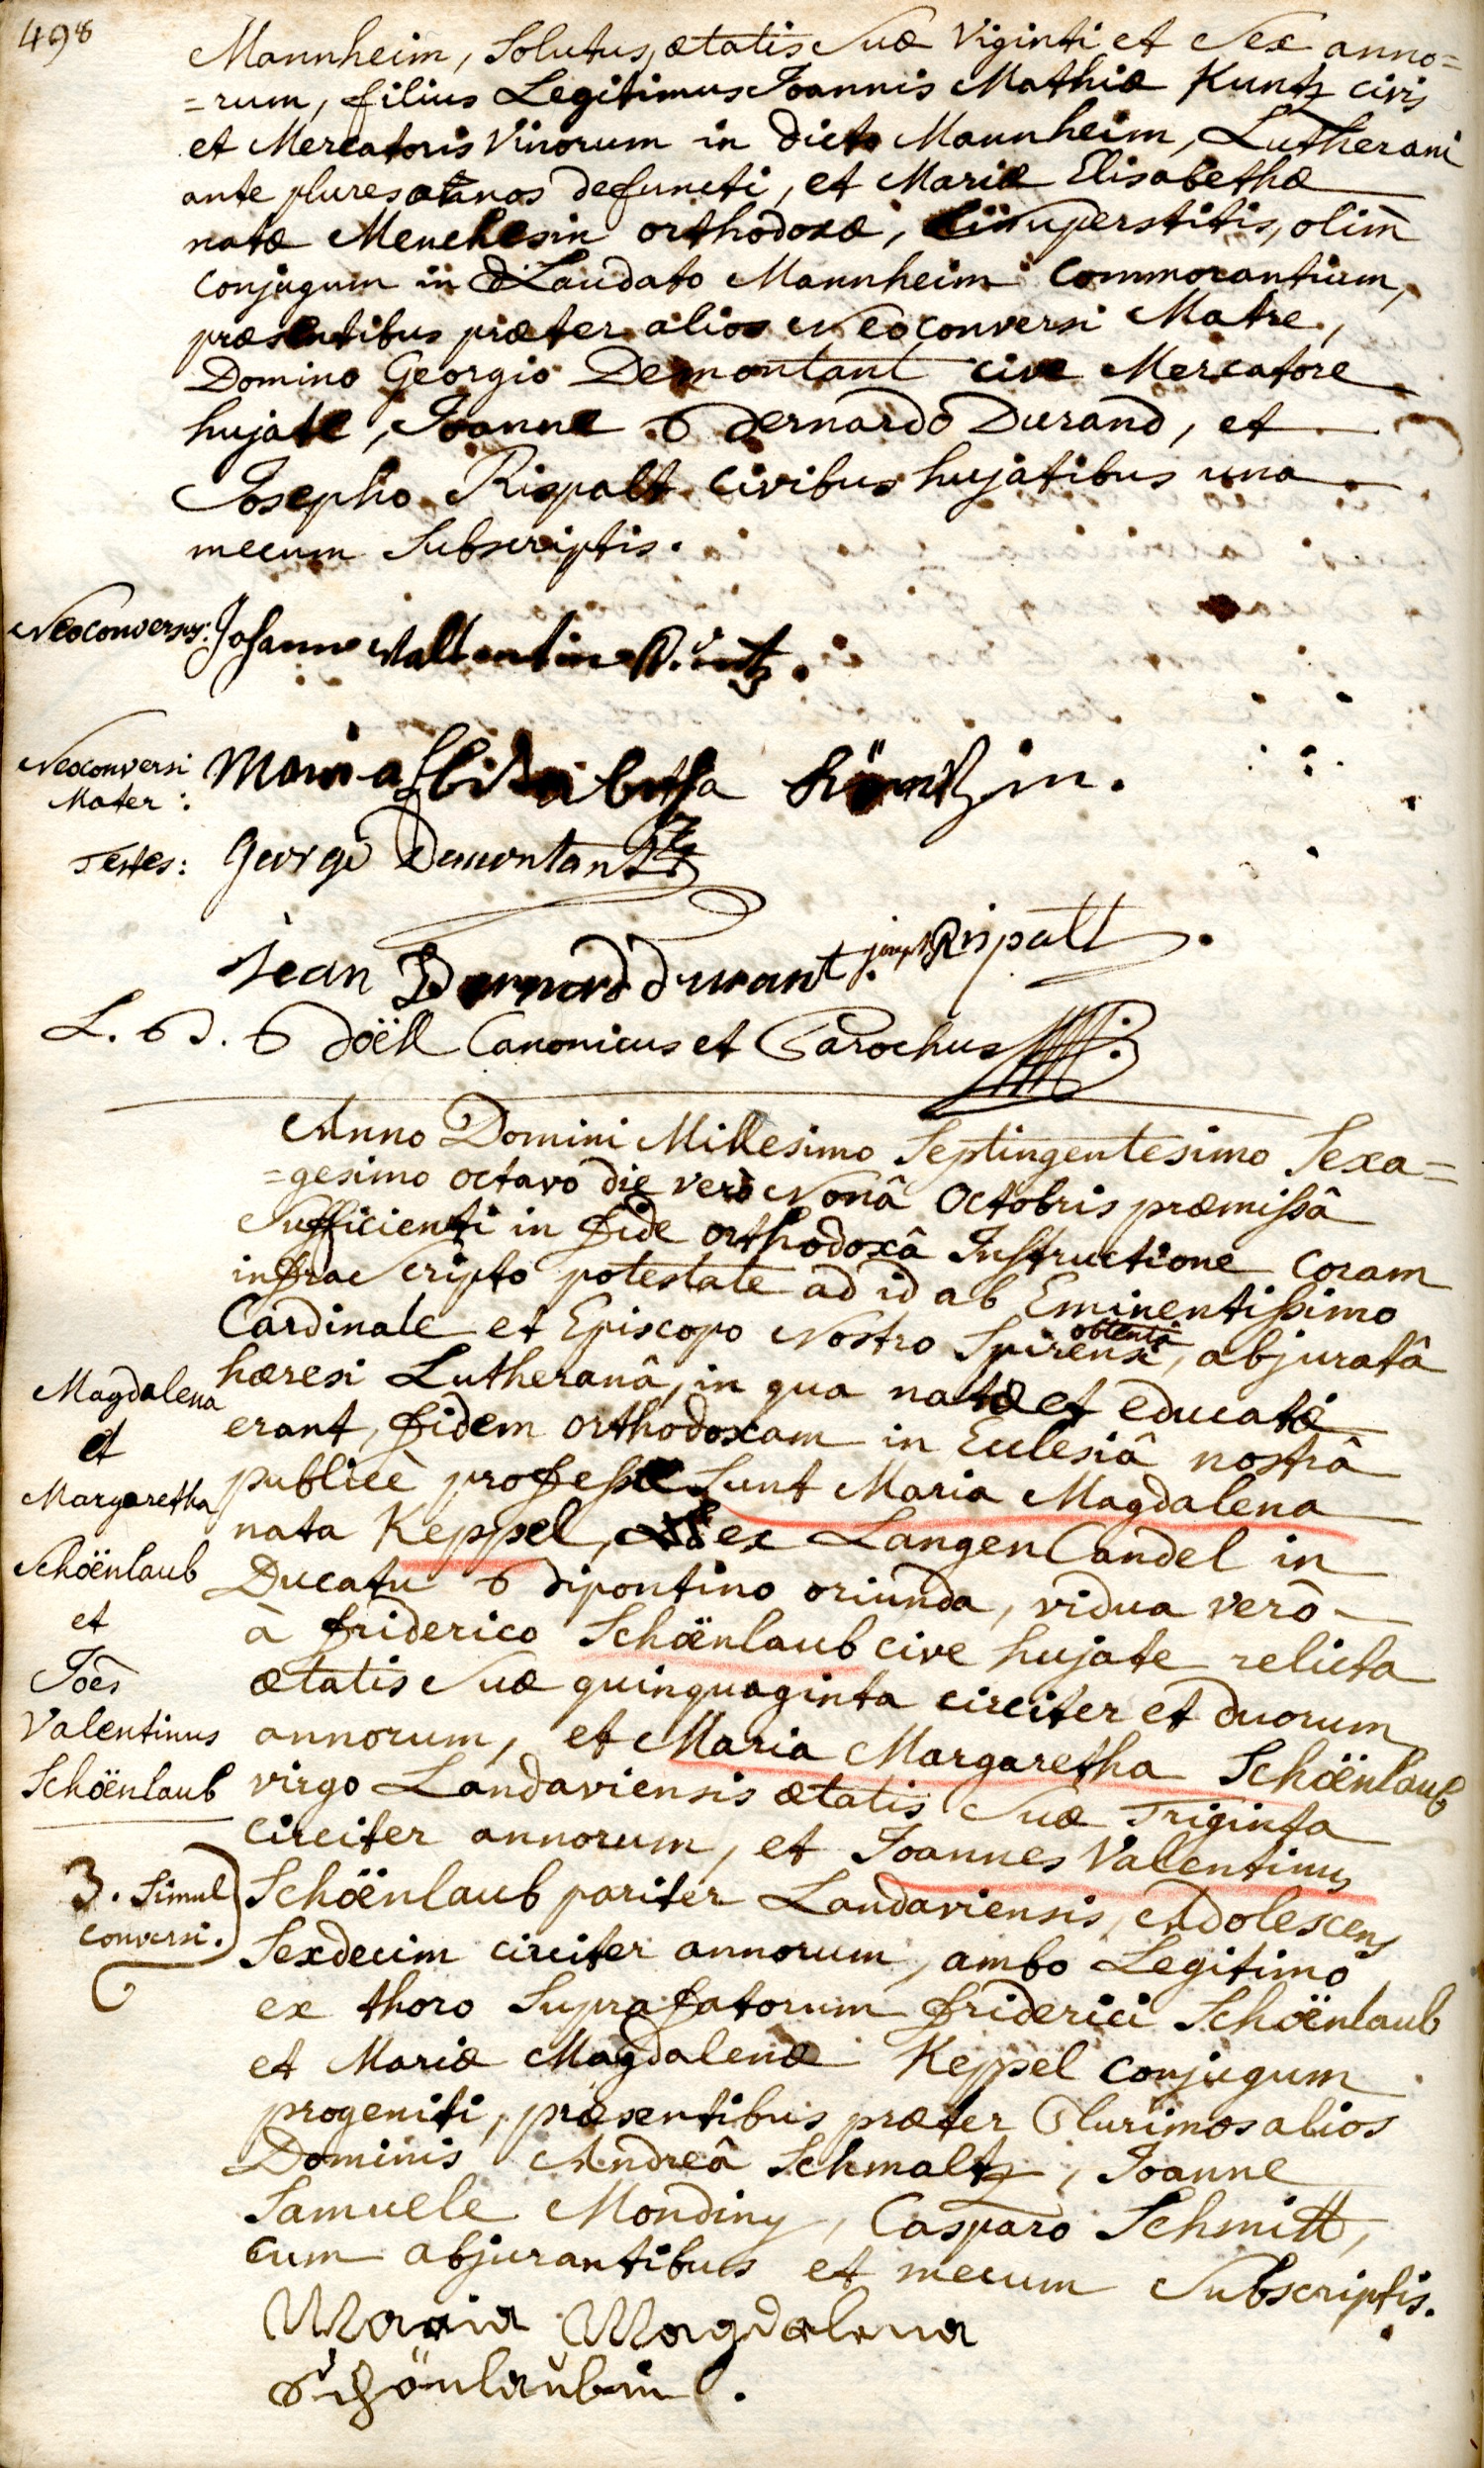 498
Mannheim, Solutus, ætatis Suæ Viginti et Sex anno=
=rum, filius Legitimus Joannis Mathiæ Kuntz civis
et Mercatoris Vinorum in dicto Mannheim, Lutherani
ante plures annos defuncti, et Mariæ Elisabethæ
natæ Menchesin orthodoxæ, superstitis, olim
conjugum in Laudato Mannheim commorantium,
præsentibus præter alios Neoconversi Matre,
Domino Georgio Demontant cive Mercatore
hujate, Joanne Bernardo Durand, et
Josepho Rispalt civibus hujatibus una
mecum Subscriptis.
Neoconversus: Johannes Vallentin Küntz.
Neoconversi Mater: Maria Elisabetha Küntzin.
Testes: George Demontant
Jean Bernard durant. joseph Rispalt.
L. B. Böell Canonicus et Parochus
Anno Domini Millesimo Septingentesimo Sexa=
=gesimo octavo die verò Nonâ Octobris præmissâ
Sufficienti in fide orthodoxâ Instructione coram
infrascripto potestate ad id ab Eminentissimo
Cardinale et Episcopo Nostro Spirensi obtentâ, abjuratâ
hæresi Lutheranâ, in qua natæ et educatæ
erant, fidem orthodoxam in Ecclesiâ nostrâ
publicè professæ Sunt Maria Magdalena
nata Keppel, ex LangenCandel in
Ducatu Bipontino oriunda, vidua verò
à friderico Schöenlaub cive hujate relicta
ætatis Suæ quinquaginta circiter et duorum
annorum, et Maria Margaretha Schöenlaub
virgo Landaviensis ætatis Suæ Triginta
circiter annorum, et Joannes Valentinus
Schöenlaub pariter Landaviensis, Adolescens
Sexdecim circiter annorum, ambo Legitimo
ex thoro Suprafatorum friderici Schöenlaub
et Mariæ Magdalenæ Keppel conjugum
progeniti, præsentibus præter Plurimos alios
Dominis Andreâ Schmaltz, Joanne
Samuele Mondiny, Casparo Schmitt,
cum abjurantibus et mecum Subscriptis.
Maria Magdalena
Schönlaubin.
Magdalena
et
Margaretha
Schöenlaub
et
Joes
Valentinus
Schöenlaub
3. Simul
conversi.